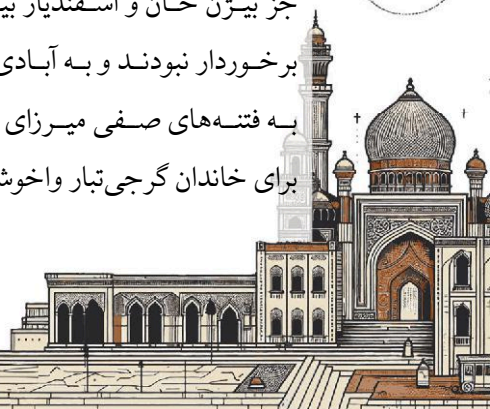 جز بیژن خان و اسفندیار
برخوردار نبودند و به آبادی
به فتنه‌های صفی میرزای
برای خاندان گرجی‌تبار واخوش